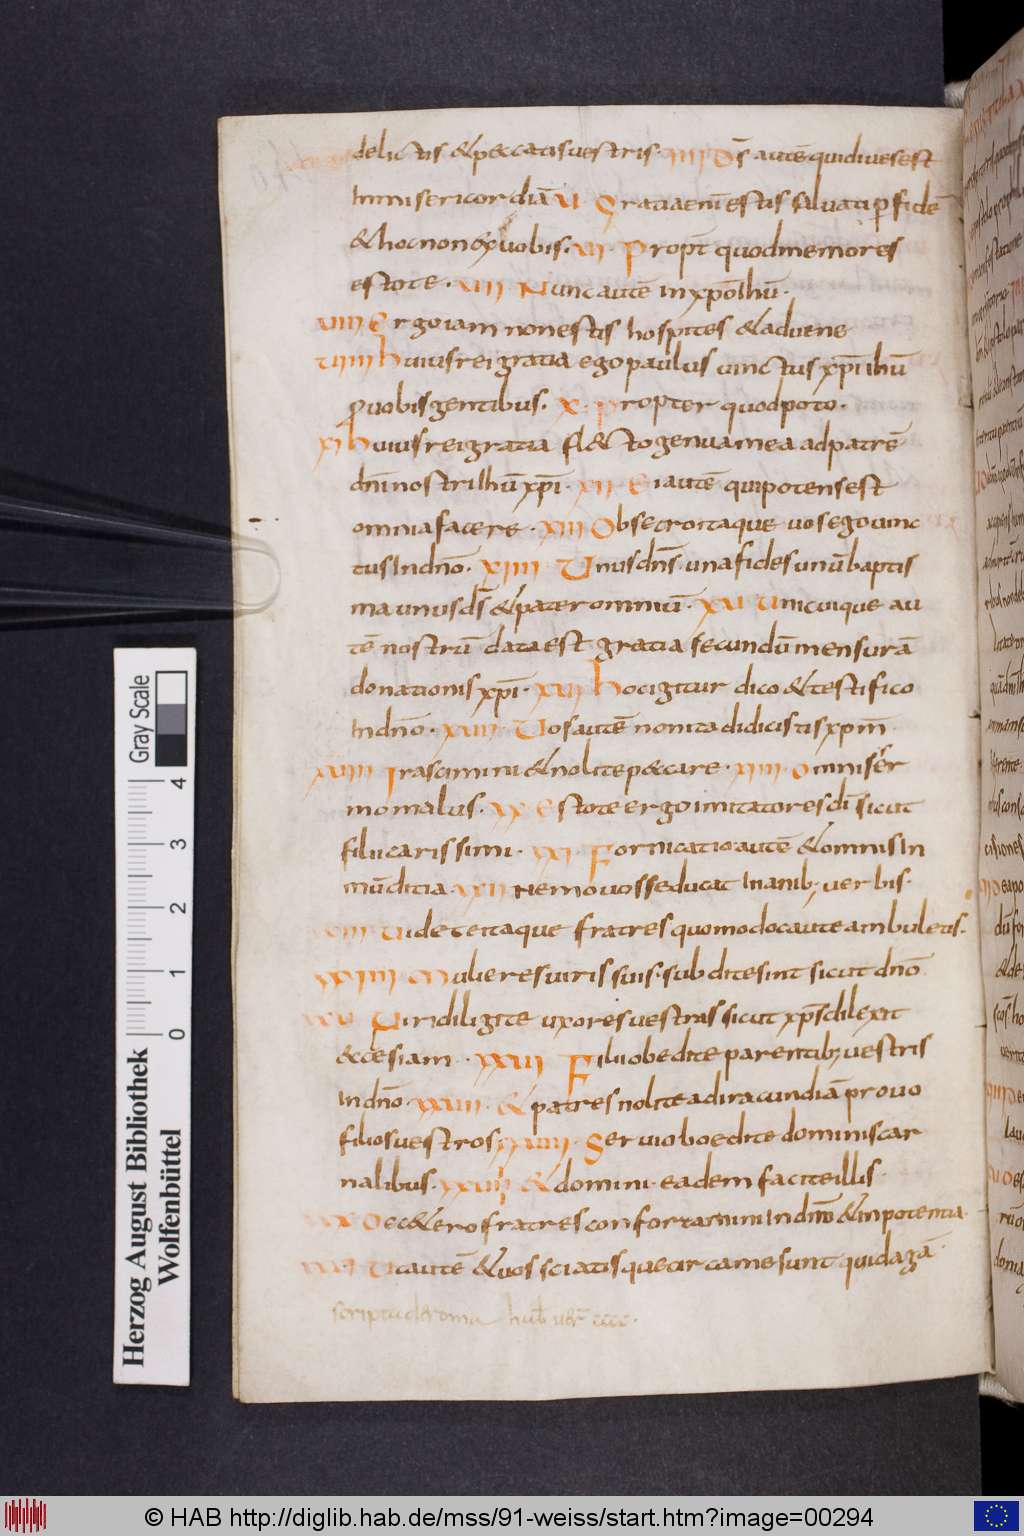 delictis &pęccatis vestris. IIII Ds̄ autē qui dives est
In misericordiā V Gratia enī estis salvati p̄ fidē
& hoc non ex vobis. VI. Propt̄ quod memores
estote. VII Nunc autē in xp̄o ihū.
VIII Ergo iam non estis hospites & advene
VIIII Huius rei gratia ego paulus vinctus xp̄i ihū
p vobis gentibus. X. Propter quod p&o.
XI Huius rei gratia fl&to genua mea ad patrē
dn̄i nostri ihū xp̄i. XII Ei autē qui potens est
omnia facere. XIII Obsecro itaque vos ego vinc
tus In dn̄o. XIIII Unus dn̄s. una fides unū baptis
ma unus ds̄ & pater omniū. XV Unicuique au
tē nostrū data est gratia secundū mensurā
donationis xp̄i. XVI Hoc igitur dico & testifico
In dn̄o. XVII Vos autē non ita didicistis xp̄m̄
XVIII Irascimini & nolite peccare. XVIIII Omnis ser
mo malus. XX Estote ergo imitatores dī sicut
filii carissimi. XXI. Fornicatio autē & omnis In
mūditia. XXII Nemo vos seducat Inanib; verbis.
XXIII Videte itaque fratres quomodo caute ambuletis.
XXIIII Mulieres viris suis. subdite sint sicut dn̄o
XXV Viri diligite uxores vestras sicut xp̄s dilexit
&clesiam. XXVI Filii obedite parentib; vestris
In dn̄o. XXVII. & patres nolite ad iracundiā provo
filios vestros XXVIII. Servi oboedite dominis car
nalibus. XXVIIII & domini. eadem facite illis.
XXX De c&ero fratres confortamini In dn̄o & In potentia.
XXXI Ut autē & vos sciatis que circa me sunt quid agā
scripta de roma hab& ver̄ cccc.
Gray Scale
4
3
2
1
0
Herzog August Bibliothek
Wolfenbüttel
© HAB http://diglib.hab.de/mss/91-weiss/start.htm?image=00294